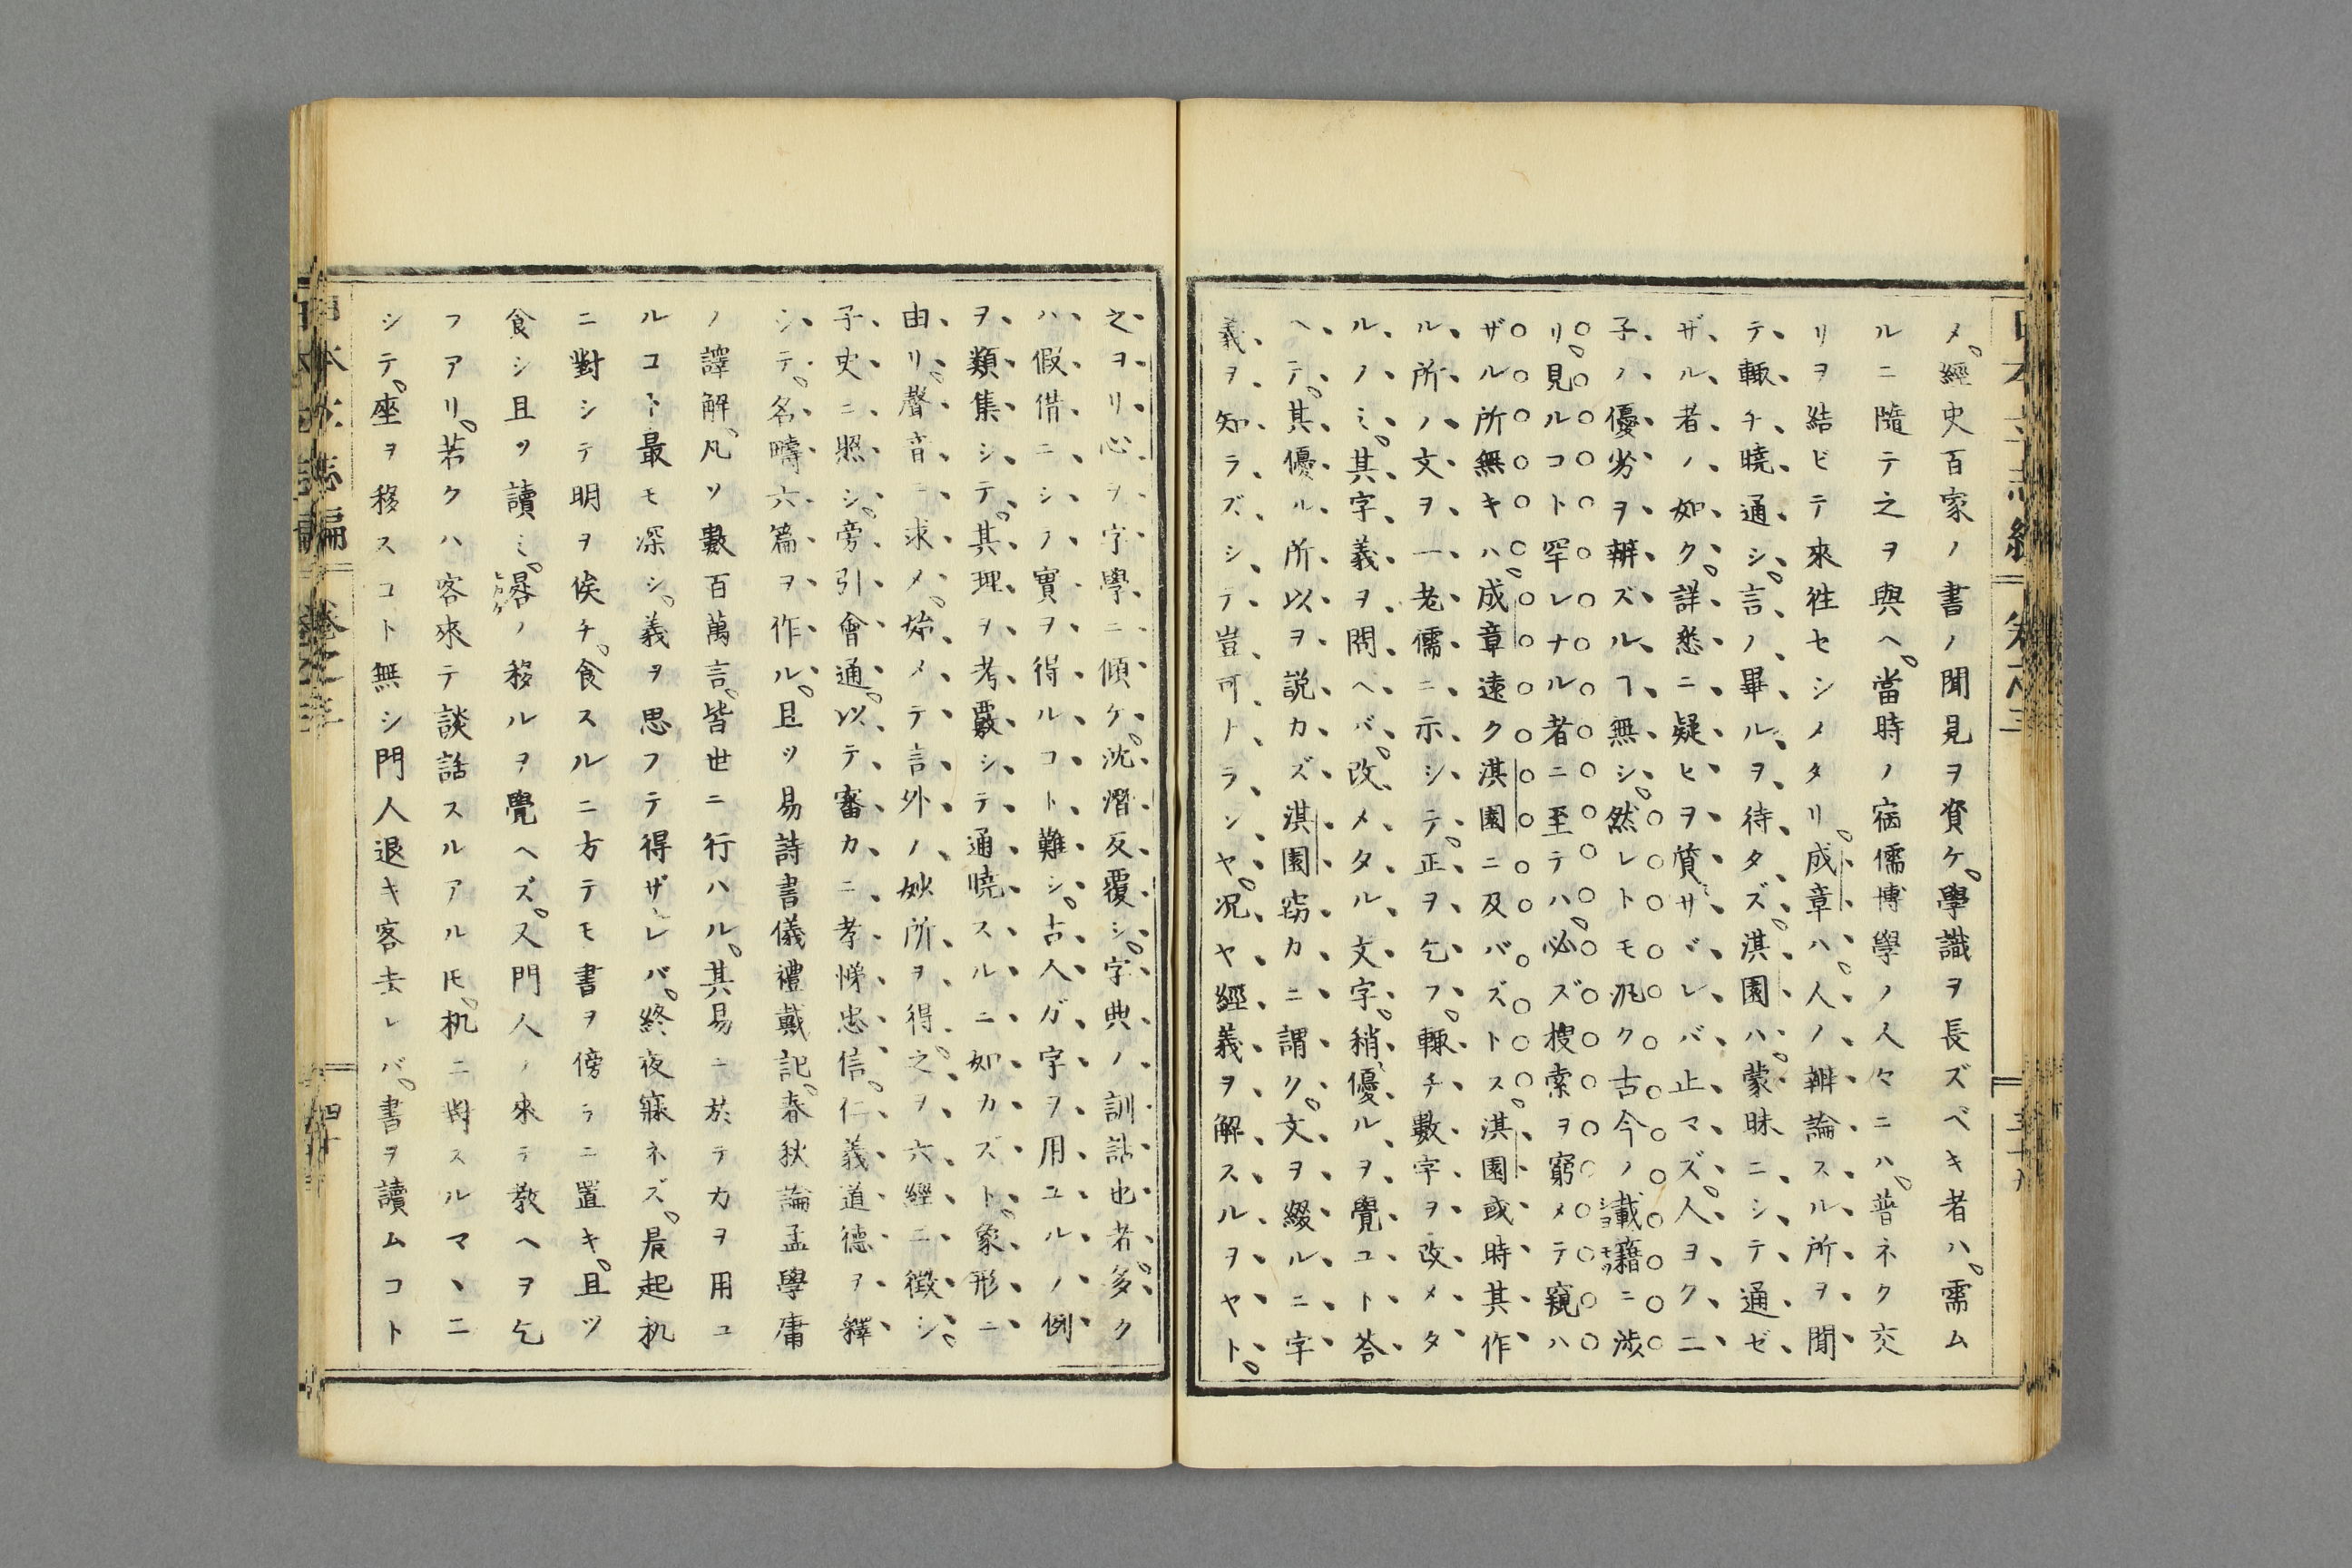 メ。經史百家ノ書ノ聞見ヲ資ケ。學識ヲ長ズベキ者ハ。需ム
ルニ隨テ之ヲ與ヘ。當時ノ宿儒博學ノ人々ニハ。普ネク交
リヲ結ビテ來徃セシメタリ。成章ハ。人ノ辨論スル所ヲ聞
テ輙チ曉通シ。言ノ畢ルヲ待タズ。淇園ハ。蒙昧ニシテ通ゼ
ザル者ノ如ク。詳悉ニ疑ヒヲ質サヾレバ止マズ。人ヨク二
子ノ優劣ヲ辨ズルヿ無シ。然レトモ汎ク古今ノ載籍ニ涉
リ。見ルコト罕レナル者ニ至テハ。必ズ搜索ヲ窮メテ窺ハ
ザル所無キハ。成章遠ク淇園ニ及バズトス。淇園或時其作
ル所ノ文ヲ一老儒ニ示シテ。正ヲ乞フ。輙チ數字ヲ改メタ
ルノミ。其字義ヲ問ヘバ。改メタル文字。稍優ルヲ覺ユト荅
ヘテ。其優ル所以ヲ説カズ。淇園窃カニ謂ク。文ヲ綴ルニ字
義ヲ知ラズシテ豈可トランヤ。况ヤ經義ヲ解スルヲヤト。
之ヨリ心ヲ字學ニ傾ケ。沈潛反覆シ。字典ノ訓詁也者。多ク
ハ假借ニシテ實ヲ得ルコト難シ。古人ガ字ヲ用ユルノ例
ヲ類集シテ。其理ヲ考覈シテ通曉スルニ如カズト。象形ニ
由リ。聲音ニ求メ。始メテ言外ノ妙所ヲ得。之ヲ六經ニ徴シ。
子史ニ照シ。旁引會通。以テ審カニ孝悌忠信。仁義道德ヲ釋
シテ。名疇六篇ヲ作ル。且ツ易詩書儀禮戴記。春秋論孟學庸
ノ譯解。凡ソ數百萬言。皆世ニ行ハル。其易ニ於テ力ヲ用ユ
ルコト最モ深シ。義ヲ思フテ得ザレバ。終夜寐ネズ。晨起机
ニ對シテ明ヲ俟チ。食スルニ方テモ書ヲ傍ラニ置キ。且ツ
食シ且ツ讀ミ。晷ノ移ルヲ覺ヘズ。又門人ノ來テ教ヘヲ乞
フアリ。若クハ客來テ談話スルアルモ。机ニ對スルマヽニ
シテ。座ヲ移スコト無シ門人退キ客去レバ。書ヲ讀ムコト